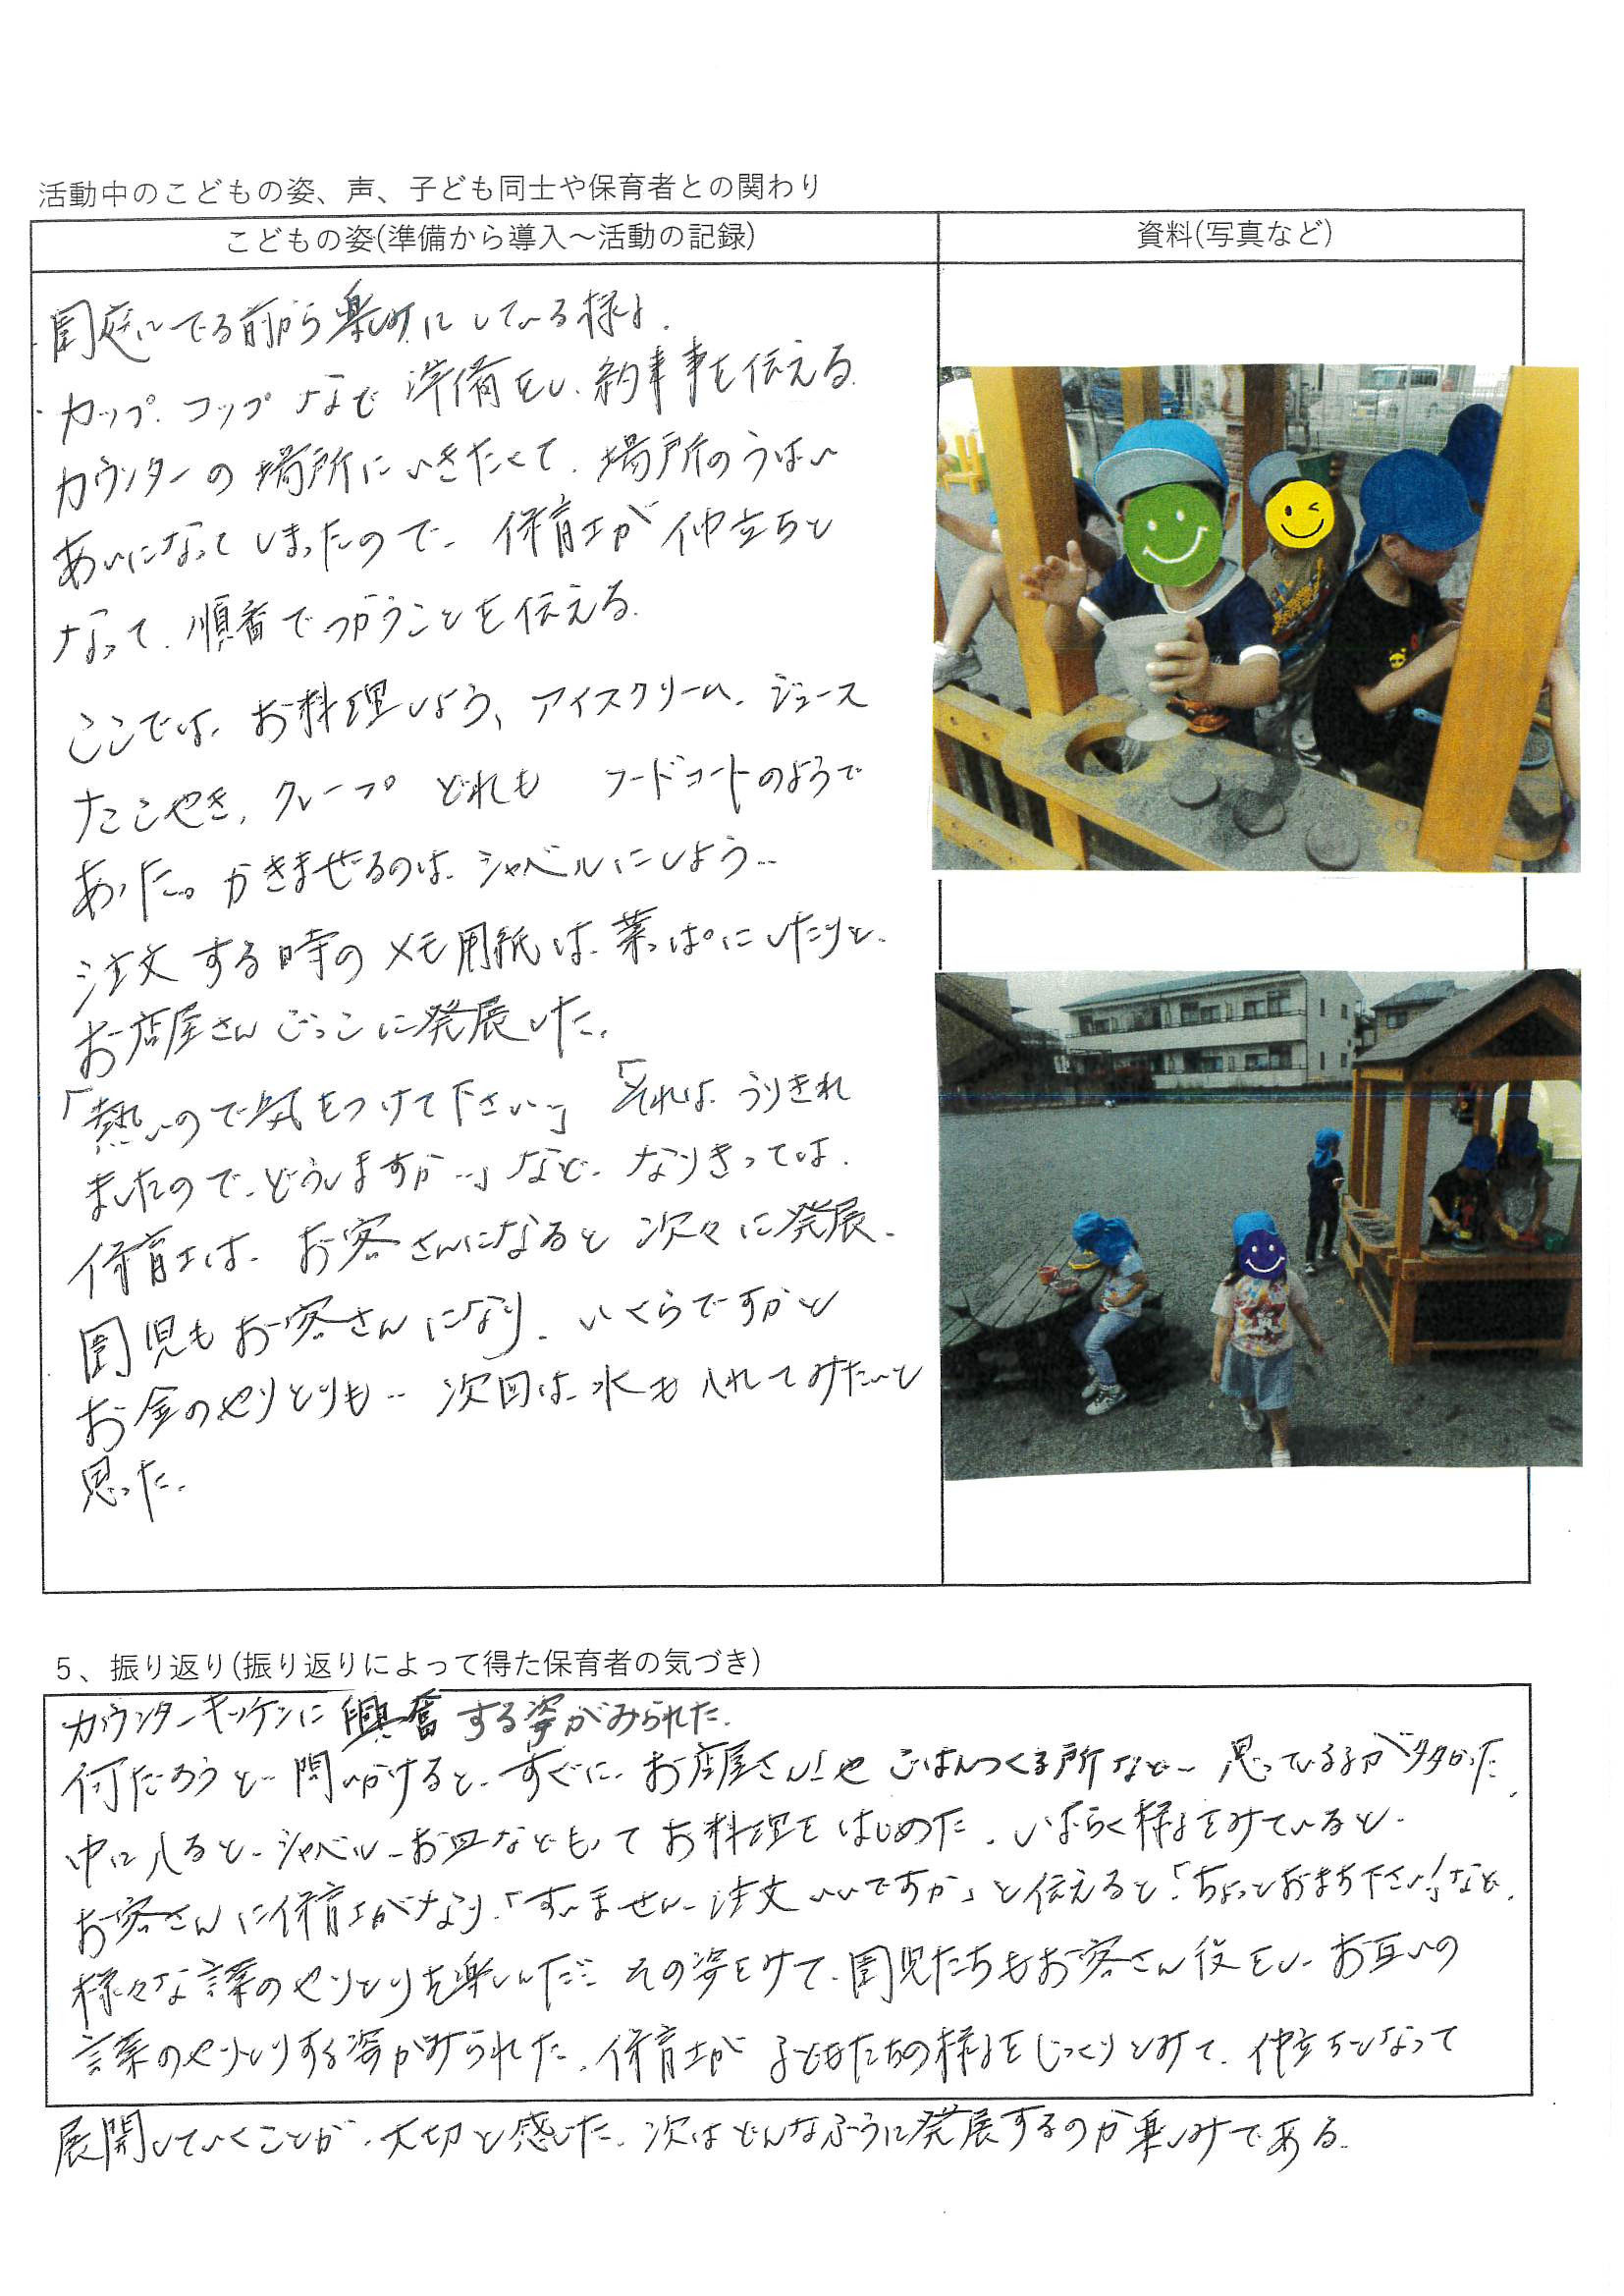 活動中のこどもの姿、声、子ども同士や保育者との関わり
こどもの姿(準備から導入～活動の記録)
資料(写真など)
・園庭にでる前から楽しみにしている様子.
・カップ、コップなど準備をし、約束事を伝える.
カウンターの場所にいきたくて、場所のうばい
あいになってしまったので、保育士が仲立ちと
なって、順番でつかうことを伝える.
ここでは、お料理しよう、アイスクリーム、ジュース
たこやき、クレープ どれも フードコートのようで
あった。かきまぜるのは、シャベルにしよう…
注文する時のメモ用紙は、葉っぱにしたりと、
お店屋さんごっこに発展した.
「熱いので気をつけて下さい」「それは、うりきれ
ましたので、どうしますか…」など、なりきっては、
保育士は、お客さんになると次々に発展、
園児もお客さんになり、いくらですかと
お金のやりとりも… 次回は、水も入れてみたいと
思った.
5、振り返り(振り返りによって得た保育者の気づき)
カウンターキッチンに興奮する姿がみられた.
何だろうと…問いかけると、すぐに、お店屋さん!や ごはんつくる所など、思っている子が多かった.
中に入ると、シャベル、お皿などもってお料理をはじめた. しばらく様子をみていると、
お客さんに保育士がなり、「すいません、注文いいですか」と伝えると「ちょっとおまち下さい!」など、
様々な言葉のやりとりを楽しんだ… その姿をみて、園児たちもお客さん役をし、お互いの
言葉のやりとりする姿がみられた. 保育士が子どもたちの様子をじっくりとみて、仲立ちとなって
展開していくことが、大切と感じた. 次はどんなふうに発展するのか楽しみである.